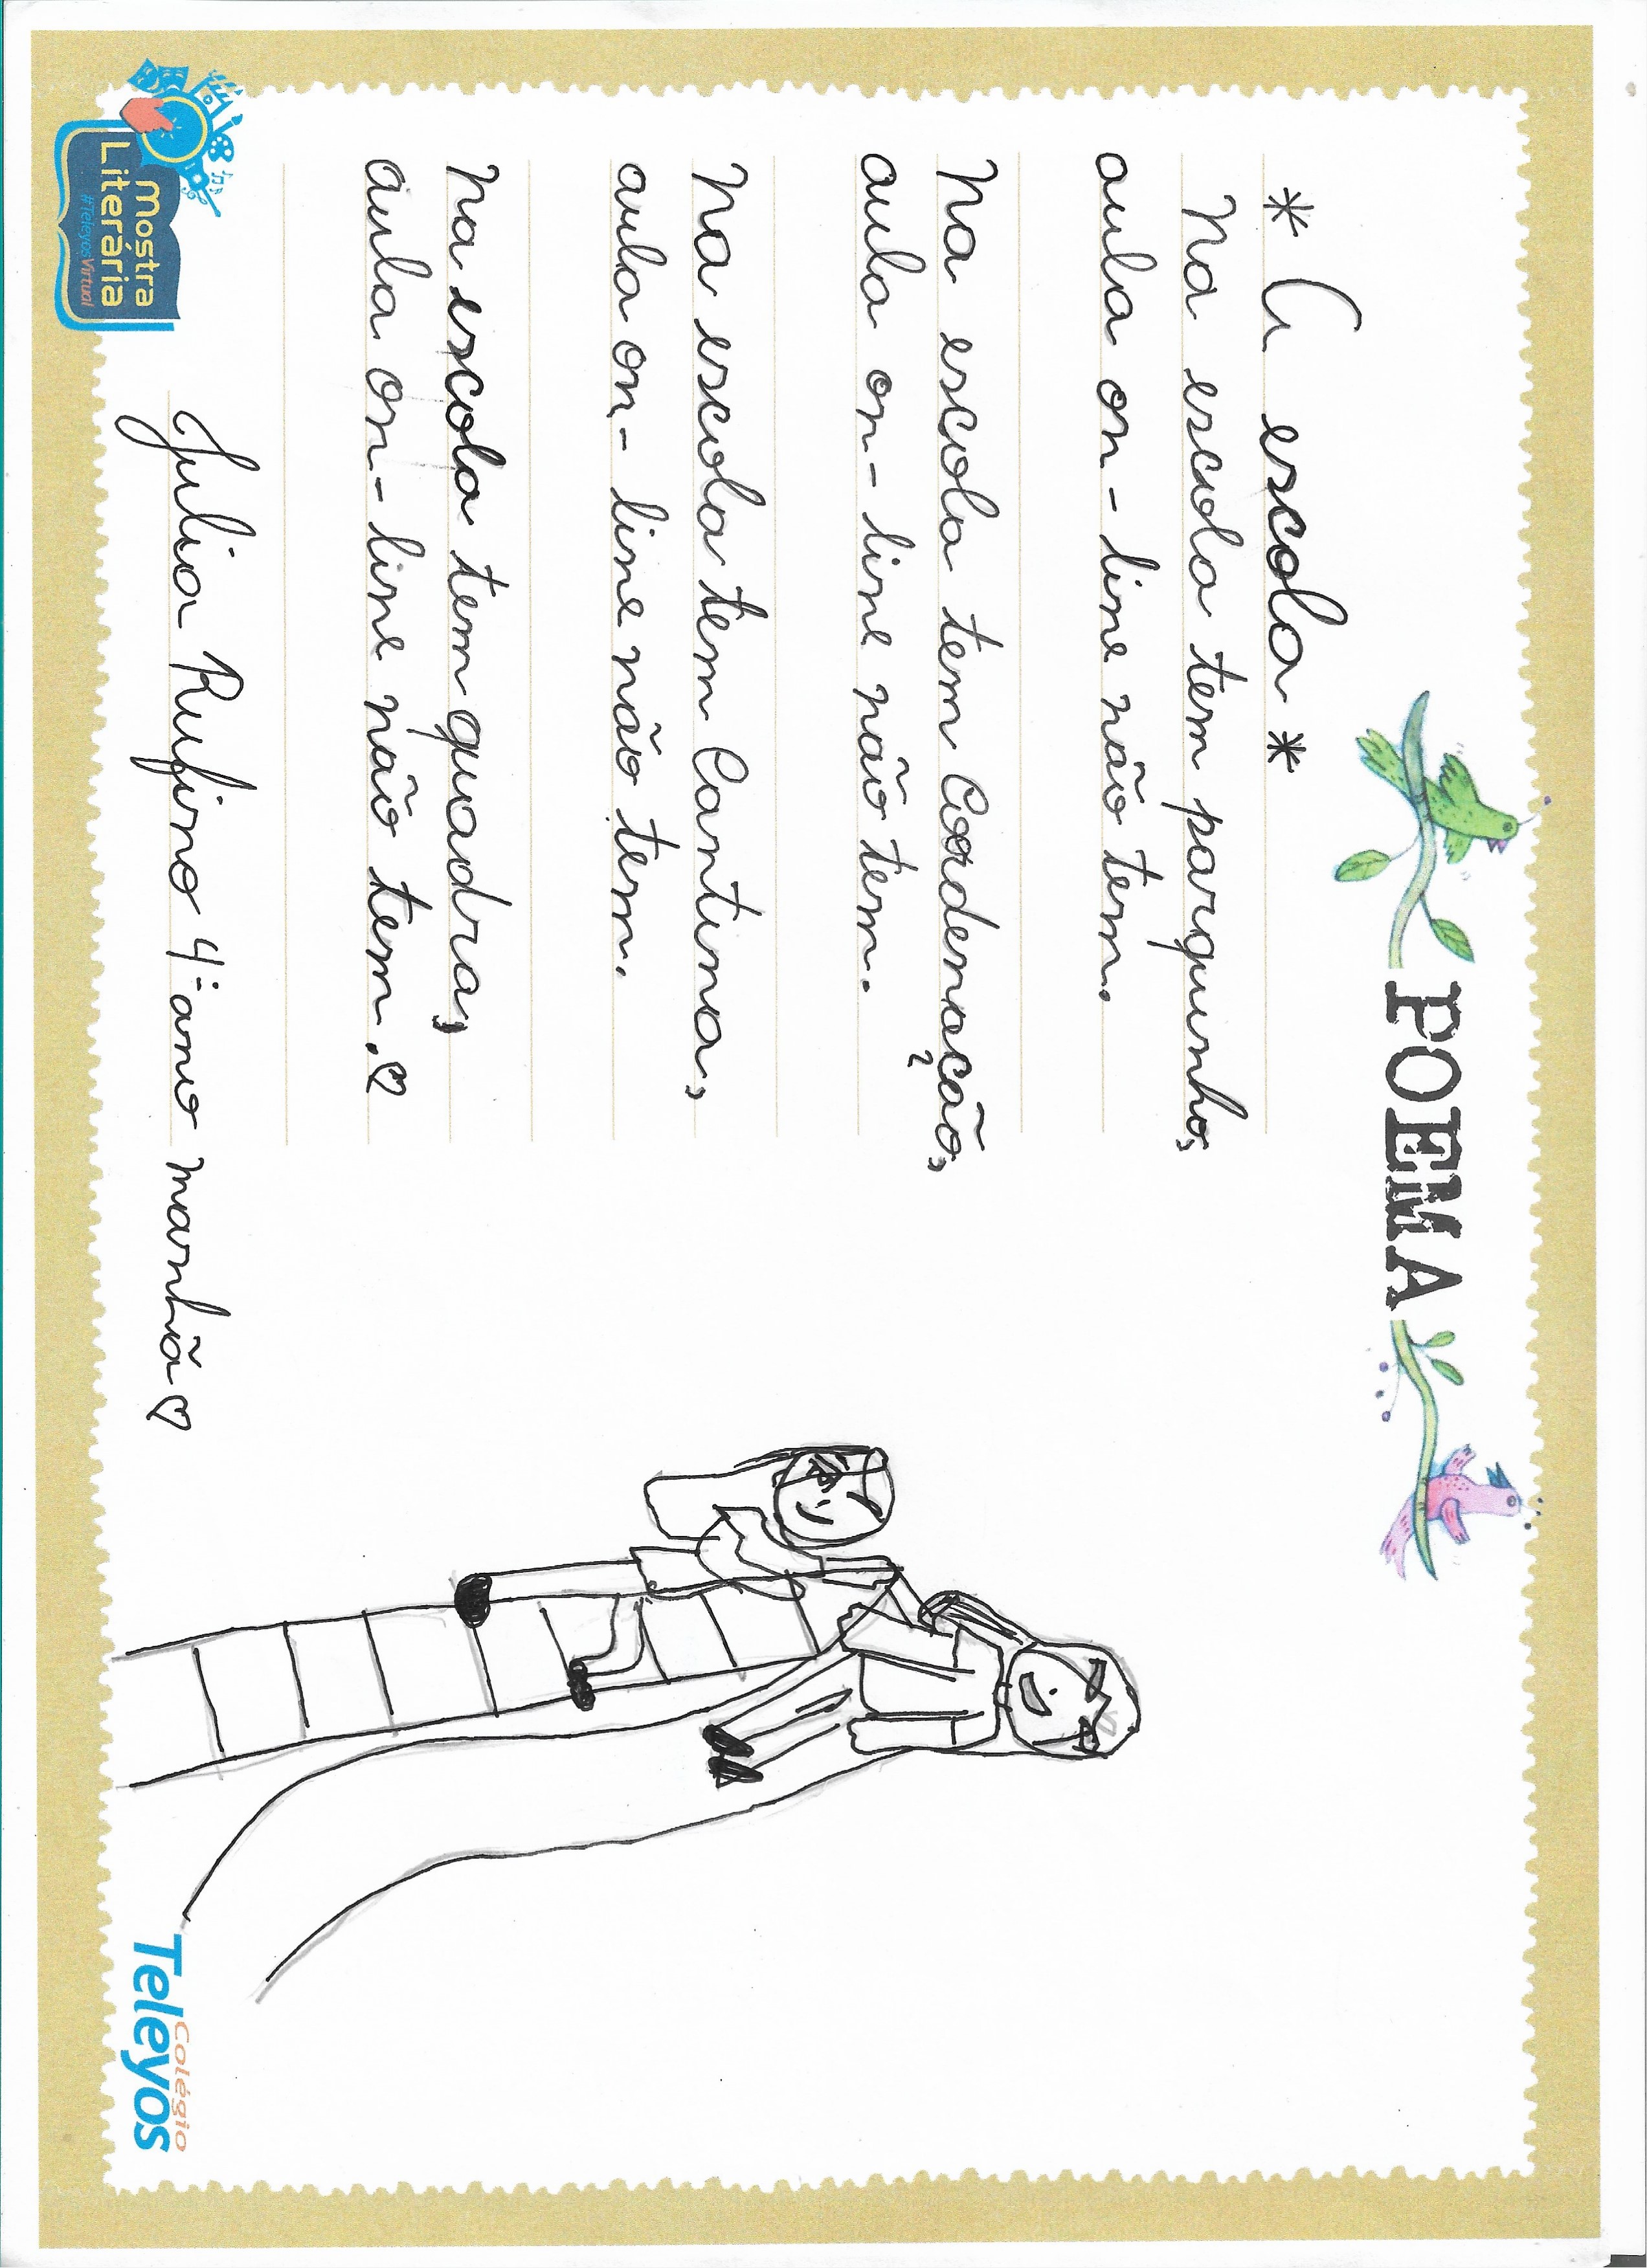 POEMA
* A escola *
Na escola tem parquinho,
aula on-line não tem.
Na escola tem Coordenação,
aula on-line não tem.
Na escola tem Cantina,
aula on-line não tem.
Na escola tem quadra,
aula on-line não tem. ♡
Julia Rufino 4º ano manhã ♡
Mostra
Literária
#TeleyosVirtual
Colégio
Teleyos